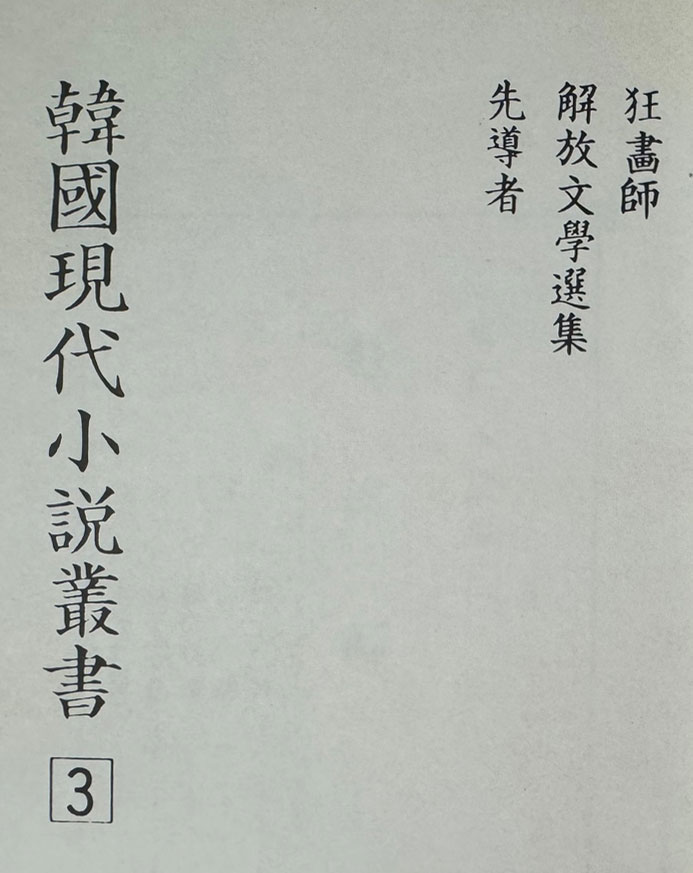 狂畵師
解放文學選集
先導者
韓國現代小說叢書
3